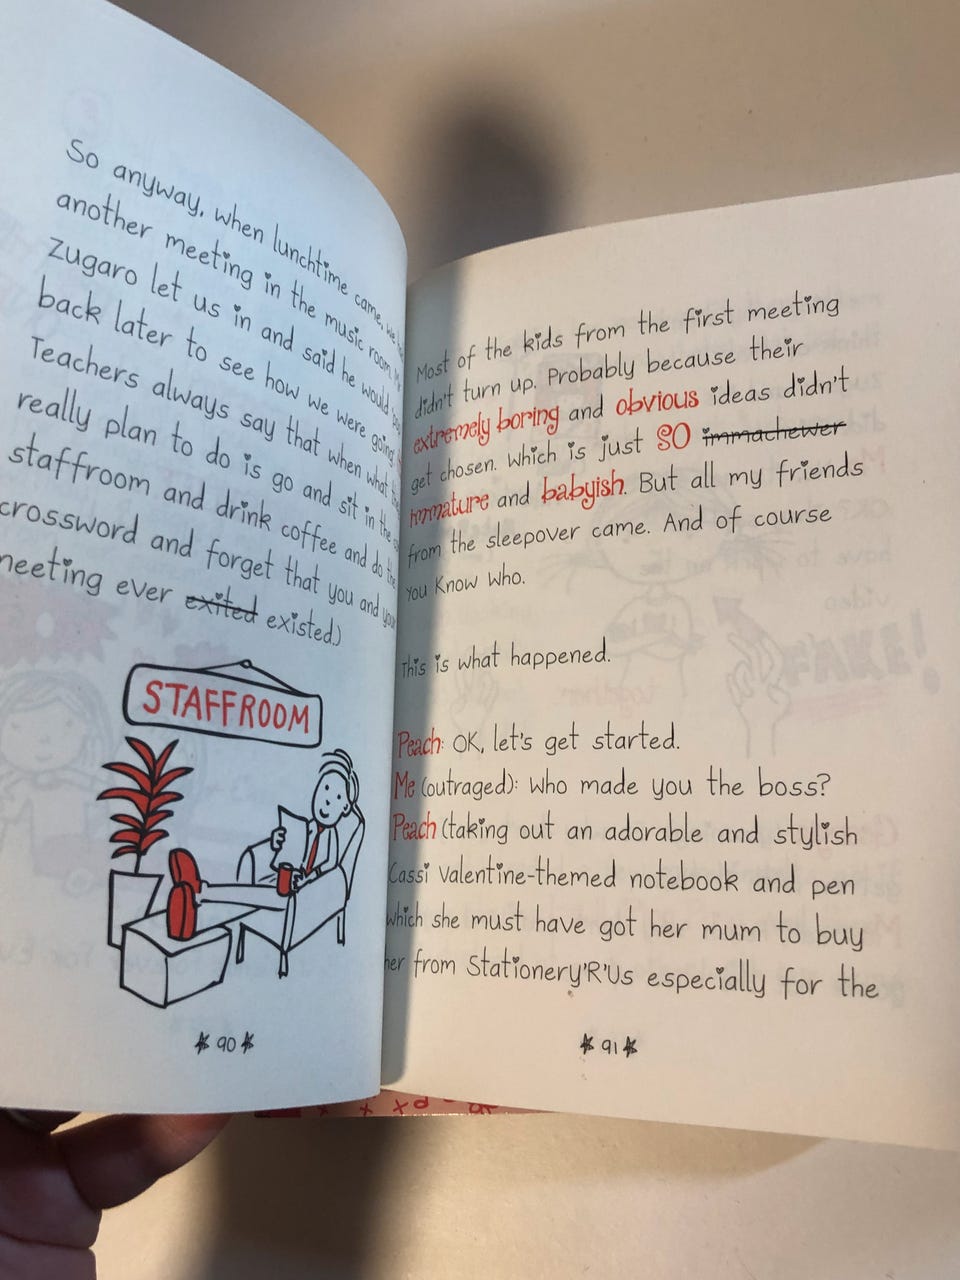 So anyway, when lunchtime came, we
another meeting in the music room.
Zugaro let us in and said he would
back later to see how we were going
Teachers always say that when what
really plan to do is go and sit in the
staffroom and drink coffee and do the
crossword and forget that you and your
meeting ever exited existed.)
STAFFROOM
90
Most of the kids from the first meeting
didn't turn up. Probably because their
extremely boring and obvious ideas didn't
get chosen. Which is just SO immachewer
immature and babyish. But all my friends
from the sleepover came. And of course
you know who.
This is what happened.
Peach: OK, let's get started.
Me (outraged): Who made you the boss?
Peach (taking out an adorable and stylish
Cassi Valentine-themed notebook and pen
which she must have got her mum to buy
her from Stationery'R'Us especially for the
91